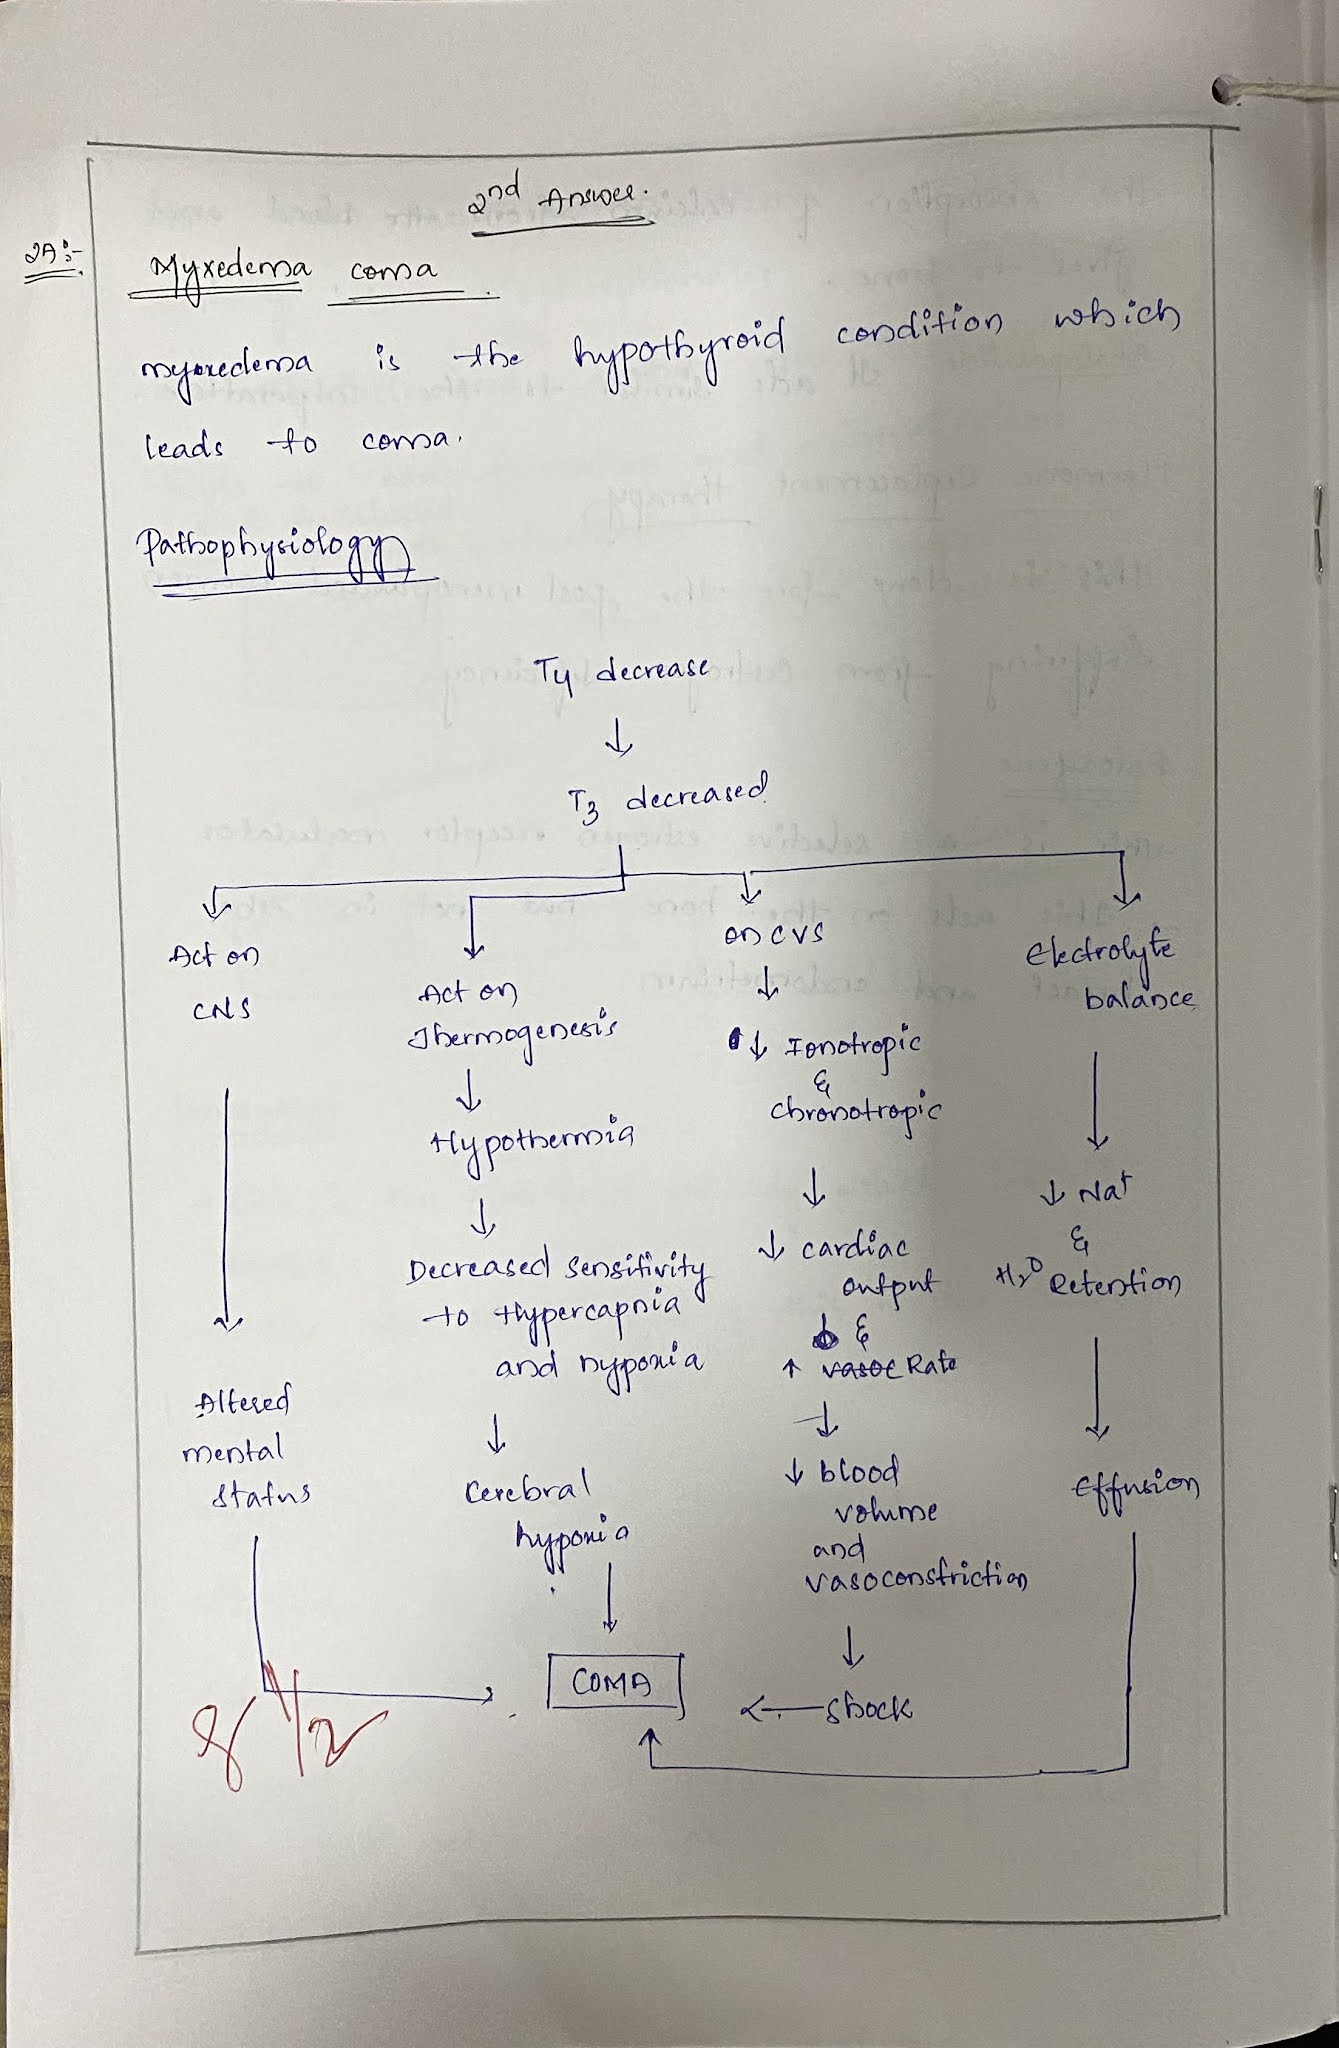 2nd Answer.
2A:-
Myxedema coma
myxedema is the hypothyroid condition which
leads to coma.
Pathophysiology
T4 decrease
↓
T3 decreased
Act on
CNS
Altered
mental
status
Act on
Thermogenesis
↓
Hypothermia
↓
Decreased sensitivity
to Hypercapnia
and hypoxia
↓
Cerebral
hypoxia
on CVS
↓
↓ Ionotropic
&
chronotropic
↓
↓ cardiac
output
&
↑ Rate
↓
↓ blood
volume
and
vasoconstriction
↓
shock
Electrolyte
balance
↓ Na+
&
H2O Retention
Effusion
COMA
8 1/2